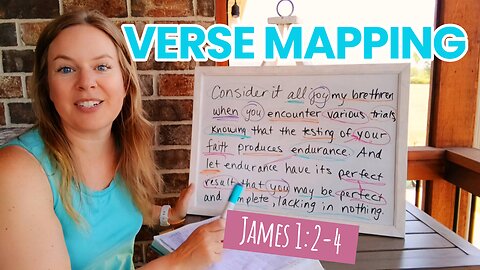 VERSE MAPPING
Consider it all joy my brethren
when you encounter various trials,
knowing that the testing of your
faith produces endurance. And
let endurance have its perfect
result that you may be perfect
and complete, lacking in nothing.
JAMES 1:2-4